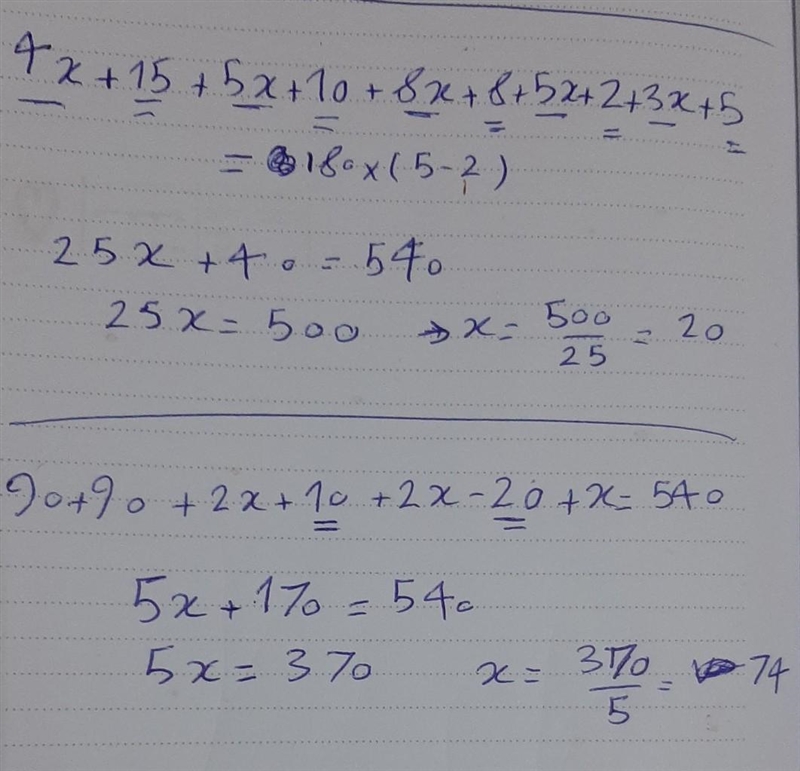 4x + 15 + 5x + 10 + 8x + 8 + 5x + 2 + 3x + 5
= 180 x (5 - 2)
25x + 40 = 540
25x = 500 → x = 500/25 = 20
90 + 90 + 2x + 10 + 2x - 20 + x = 540
5x + 170 = 540
5x = 370 x = 370/5 = 74